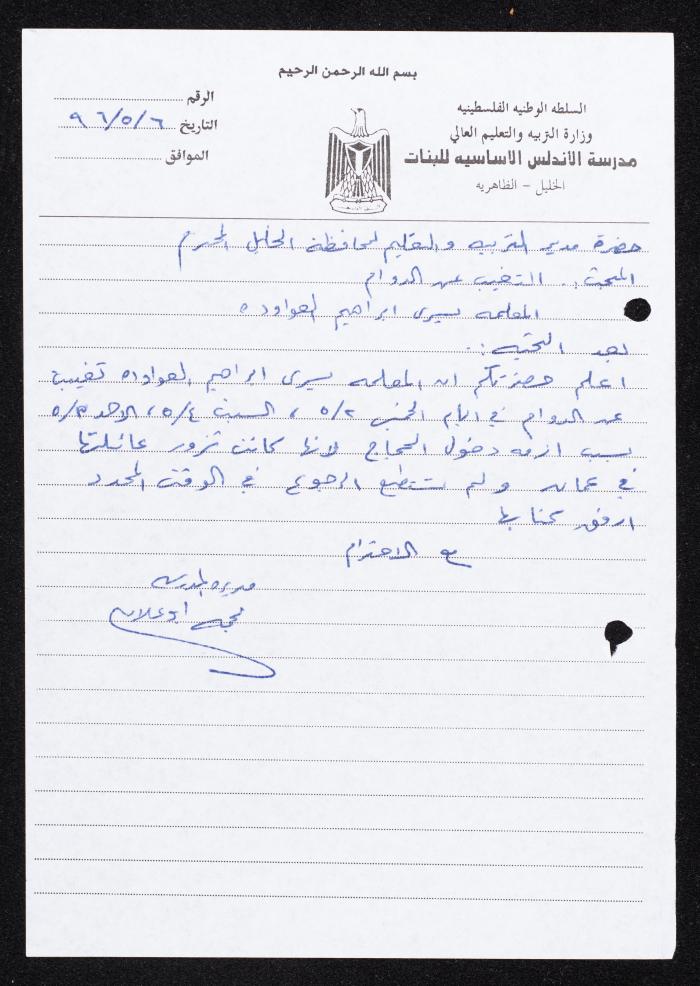 بسم الله الرحمن الرحيم
السلطه الوطنيه الفلسطينيه
وزارة التربيه والتعليم العالي
مدرسة الأندلس الاساسيه للبنات
الخليل - الظاهريه
الرقم
التاريخ ٩٦/٥/٦
الموافق
حضرة مدير التربيه والتعليم لمحافظة الخليل المحترم
المبحث:. التغيب عن الدوام
المعلمه يسرى ابراهيم العواوده
بعد التحيه:.
اعلم حضرتكم ان المعلمه يسرى ابراهيم العواوده تغيبت
عن الدوام في الأيام الخميس ٥/٢ ، السبت ٥/٤ ، الاحد ٥/٥
بسبب ازمه دخول الحجاج لانها كانت تزور عائلتها
في عمان ولم تستطع الرجوع في الوقت المحدد
ارفق كتابها
مع الاحترام
مديرة المدرسه
ابو علان